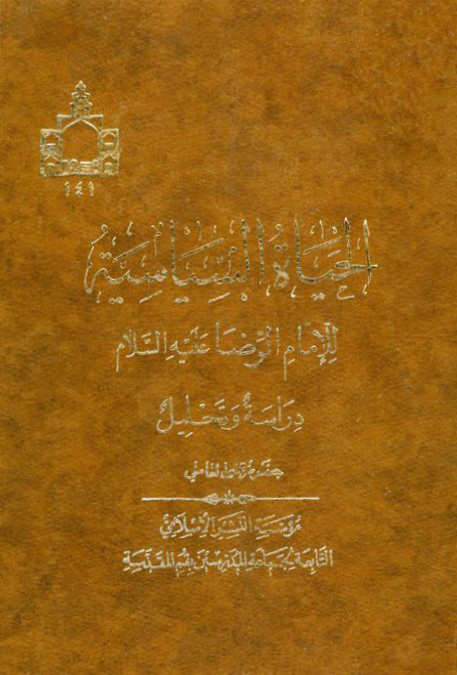 ١٤١
الحياة السياسية
للإمام الرضا عليه السلام
دراسة وتحليل
جعفر مرتضى العاملي
مؤسسة النشر الإسلامي
التابعة لجماعة المدرسين بقم المقدسة